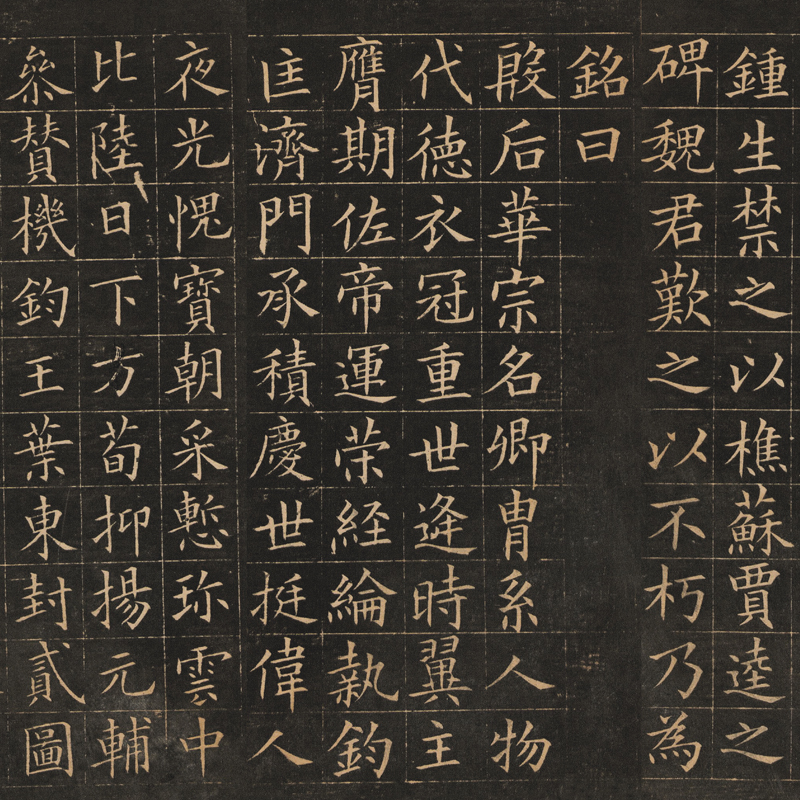 鍾生禁之以樵蘇賈逵之
碑魏君歎之以不朽乃為
銘曰
殷后華宗名卿冑系人物
代德衣冠重世逢時翼主
膺期佐帝運荣経綸執鈞
匡濟門承積慶世挺偉人
夜光愧寶朝采慙珎雲中
比陸日下方荀抑揚元輔
叅賛機鈞王葉東封貳圖